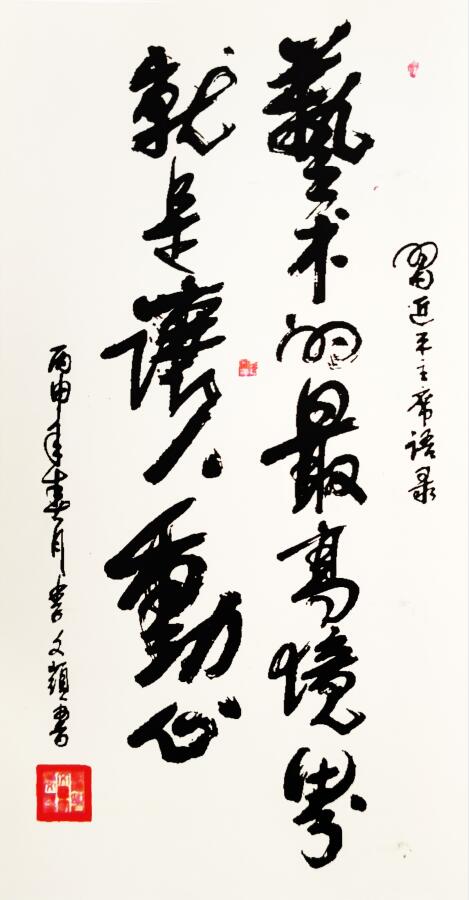 習近平主席語录
藝术的最高境界
就是讓人動心
丙申年春月李文顯書